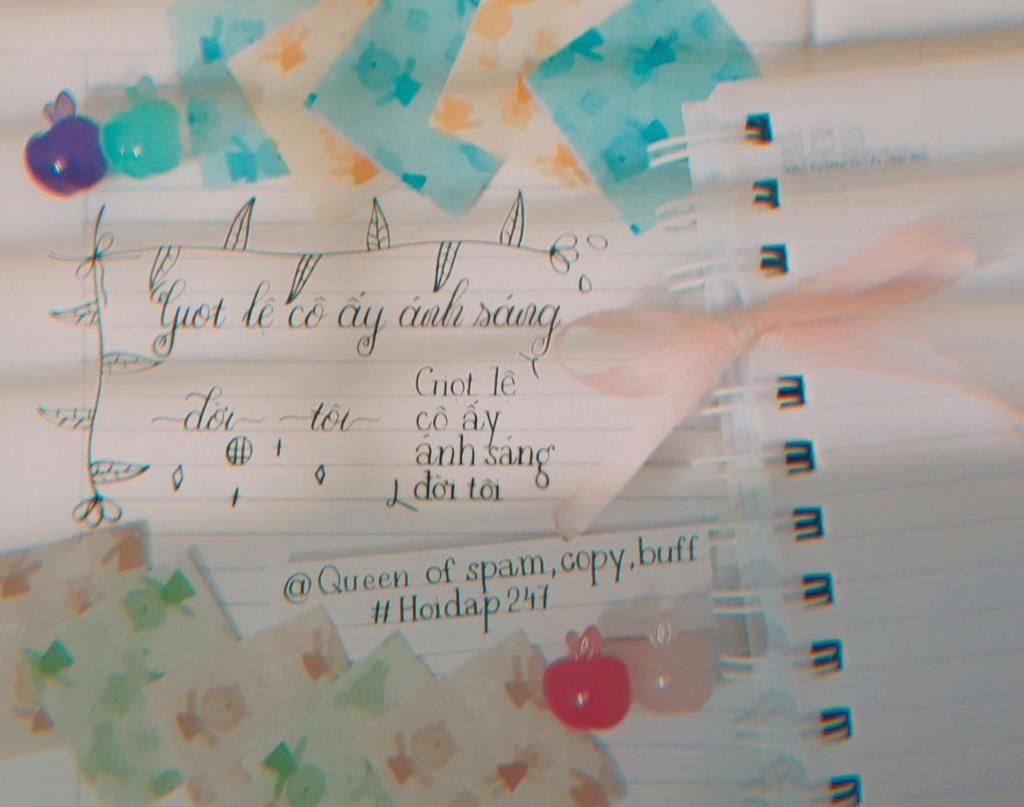 Giọt lê cô ấy ánh sáng
đời tôi
Giọt lê
cô ấy
ánh sáng
đời tôi
@Queen of spam, copy, buff
#Hoidap247